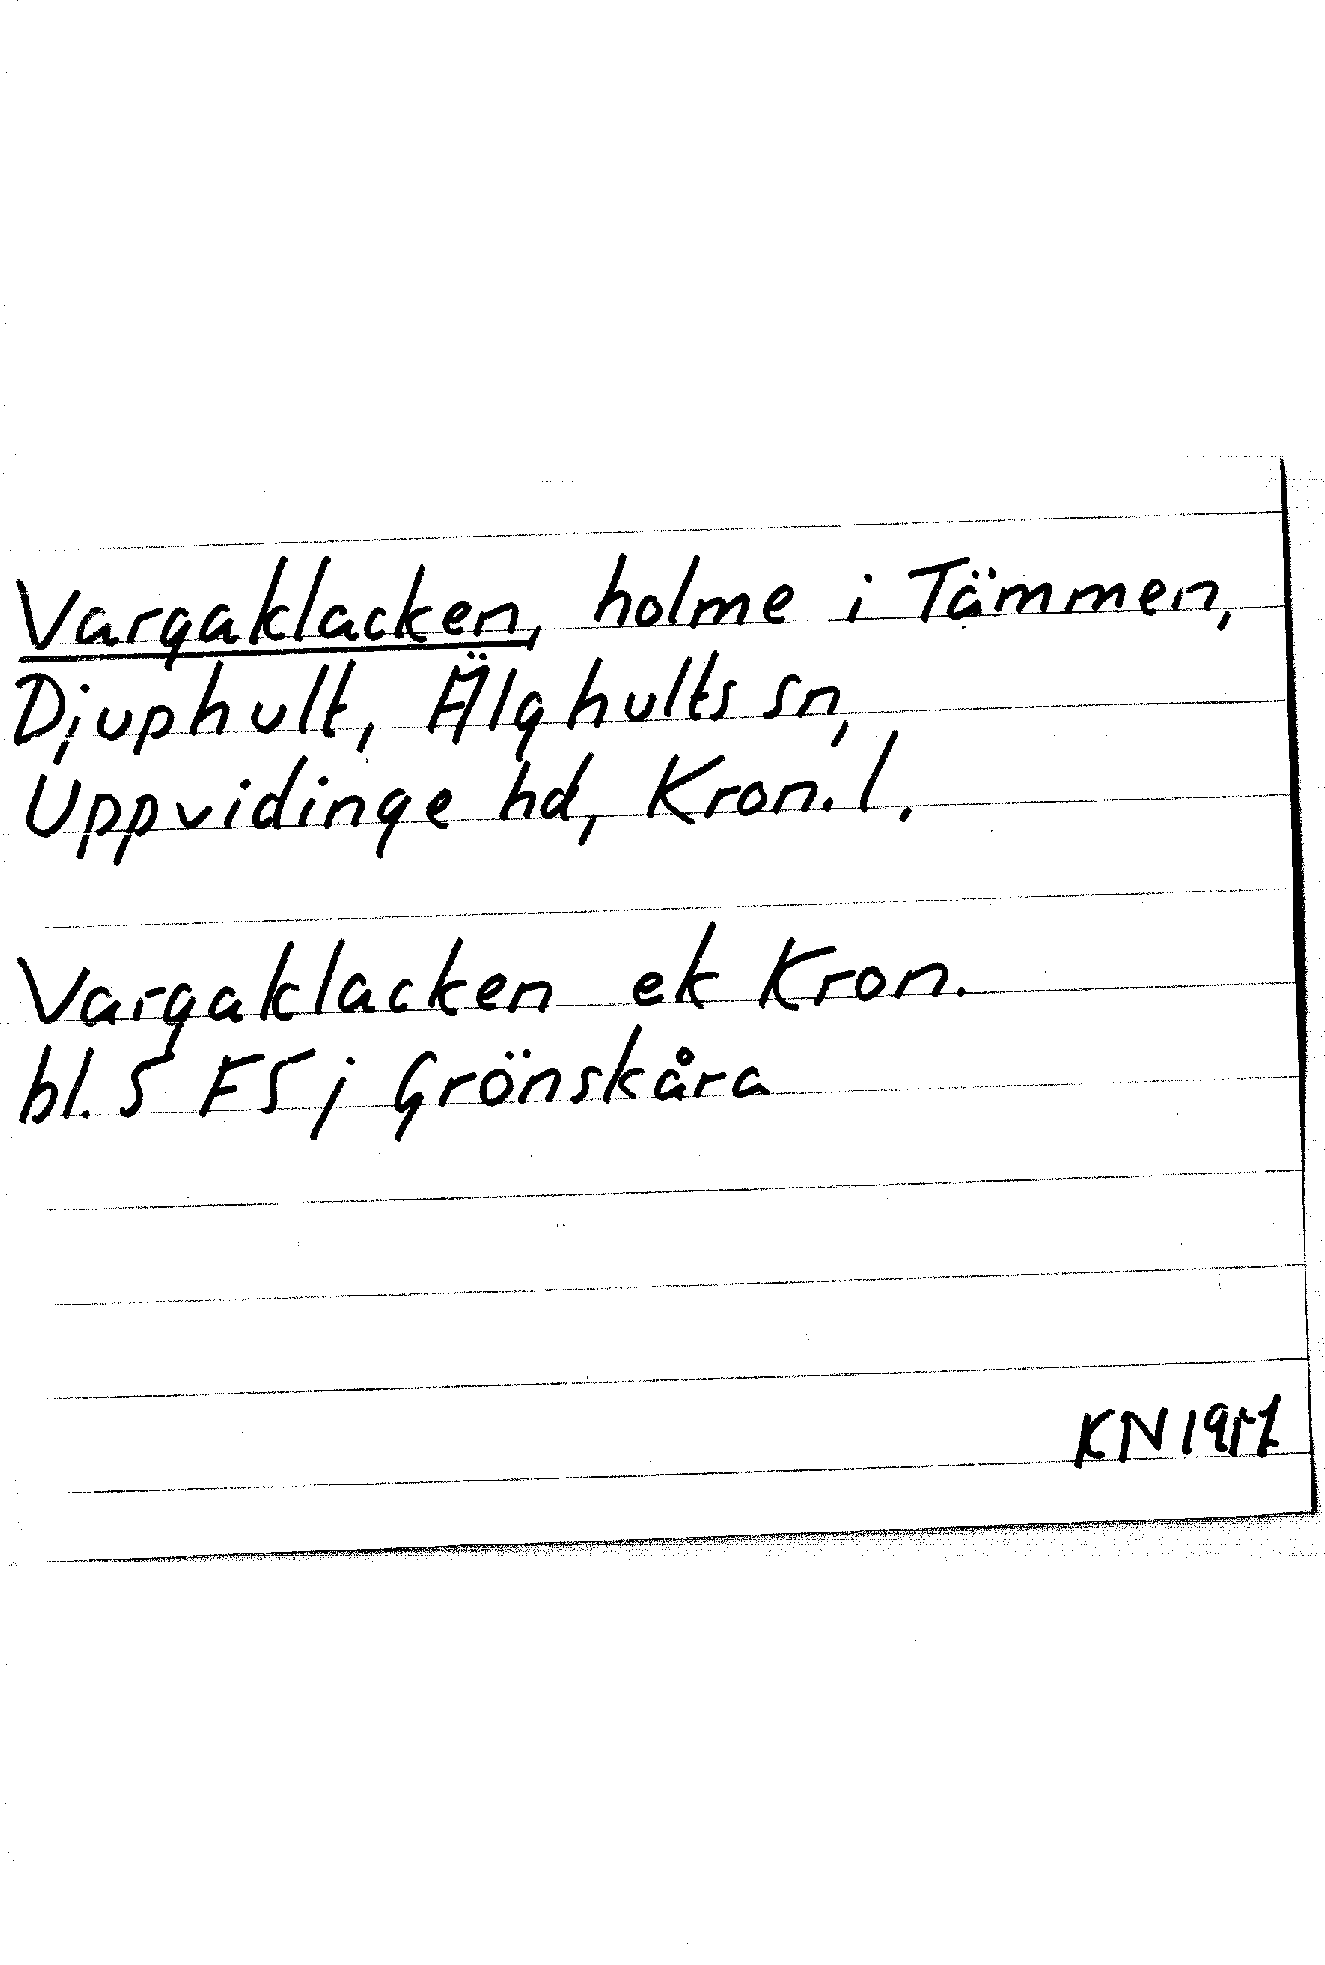 Vargaklacken, holme i Tämmen,
Djuphult, Älghults sn,
Uppvidinge hd, Kron. l.
Vargaklacken ek Kron.
bl. 5 FS j Grönskåra
KN